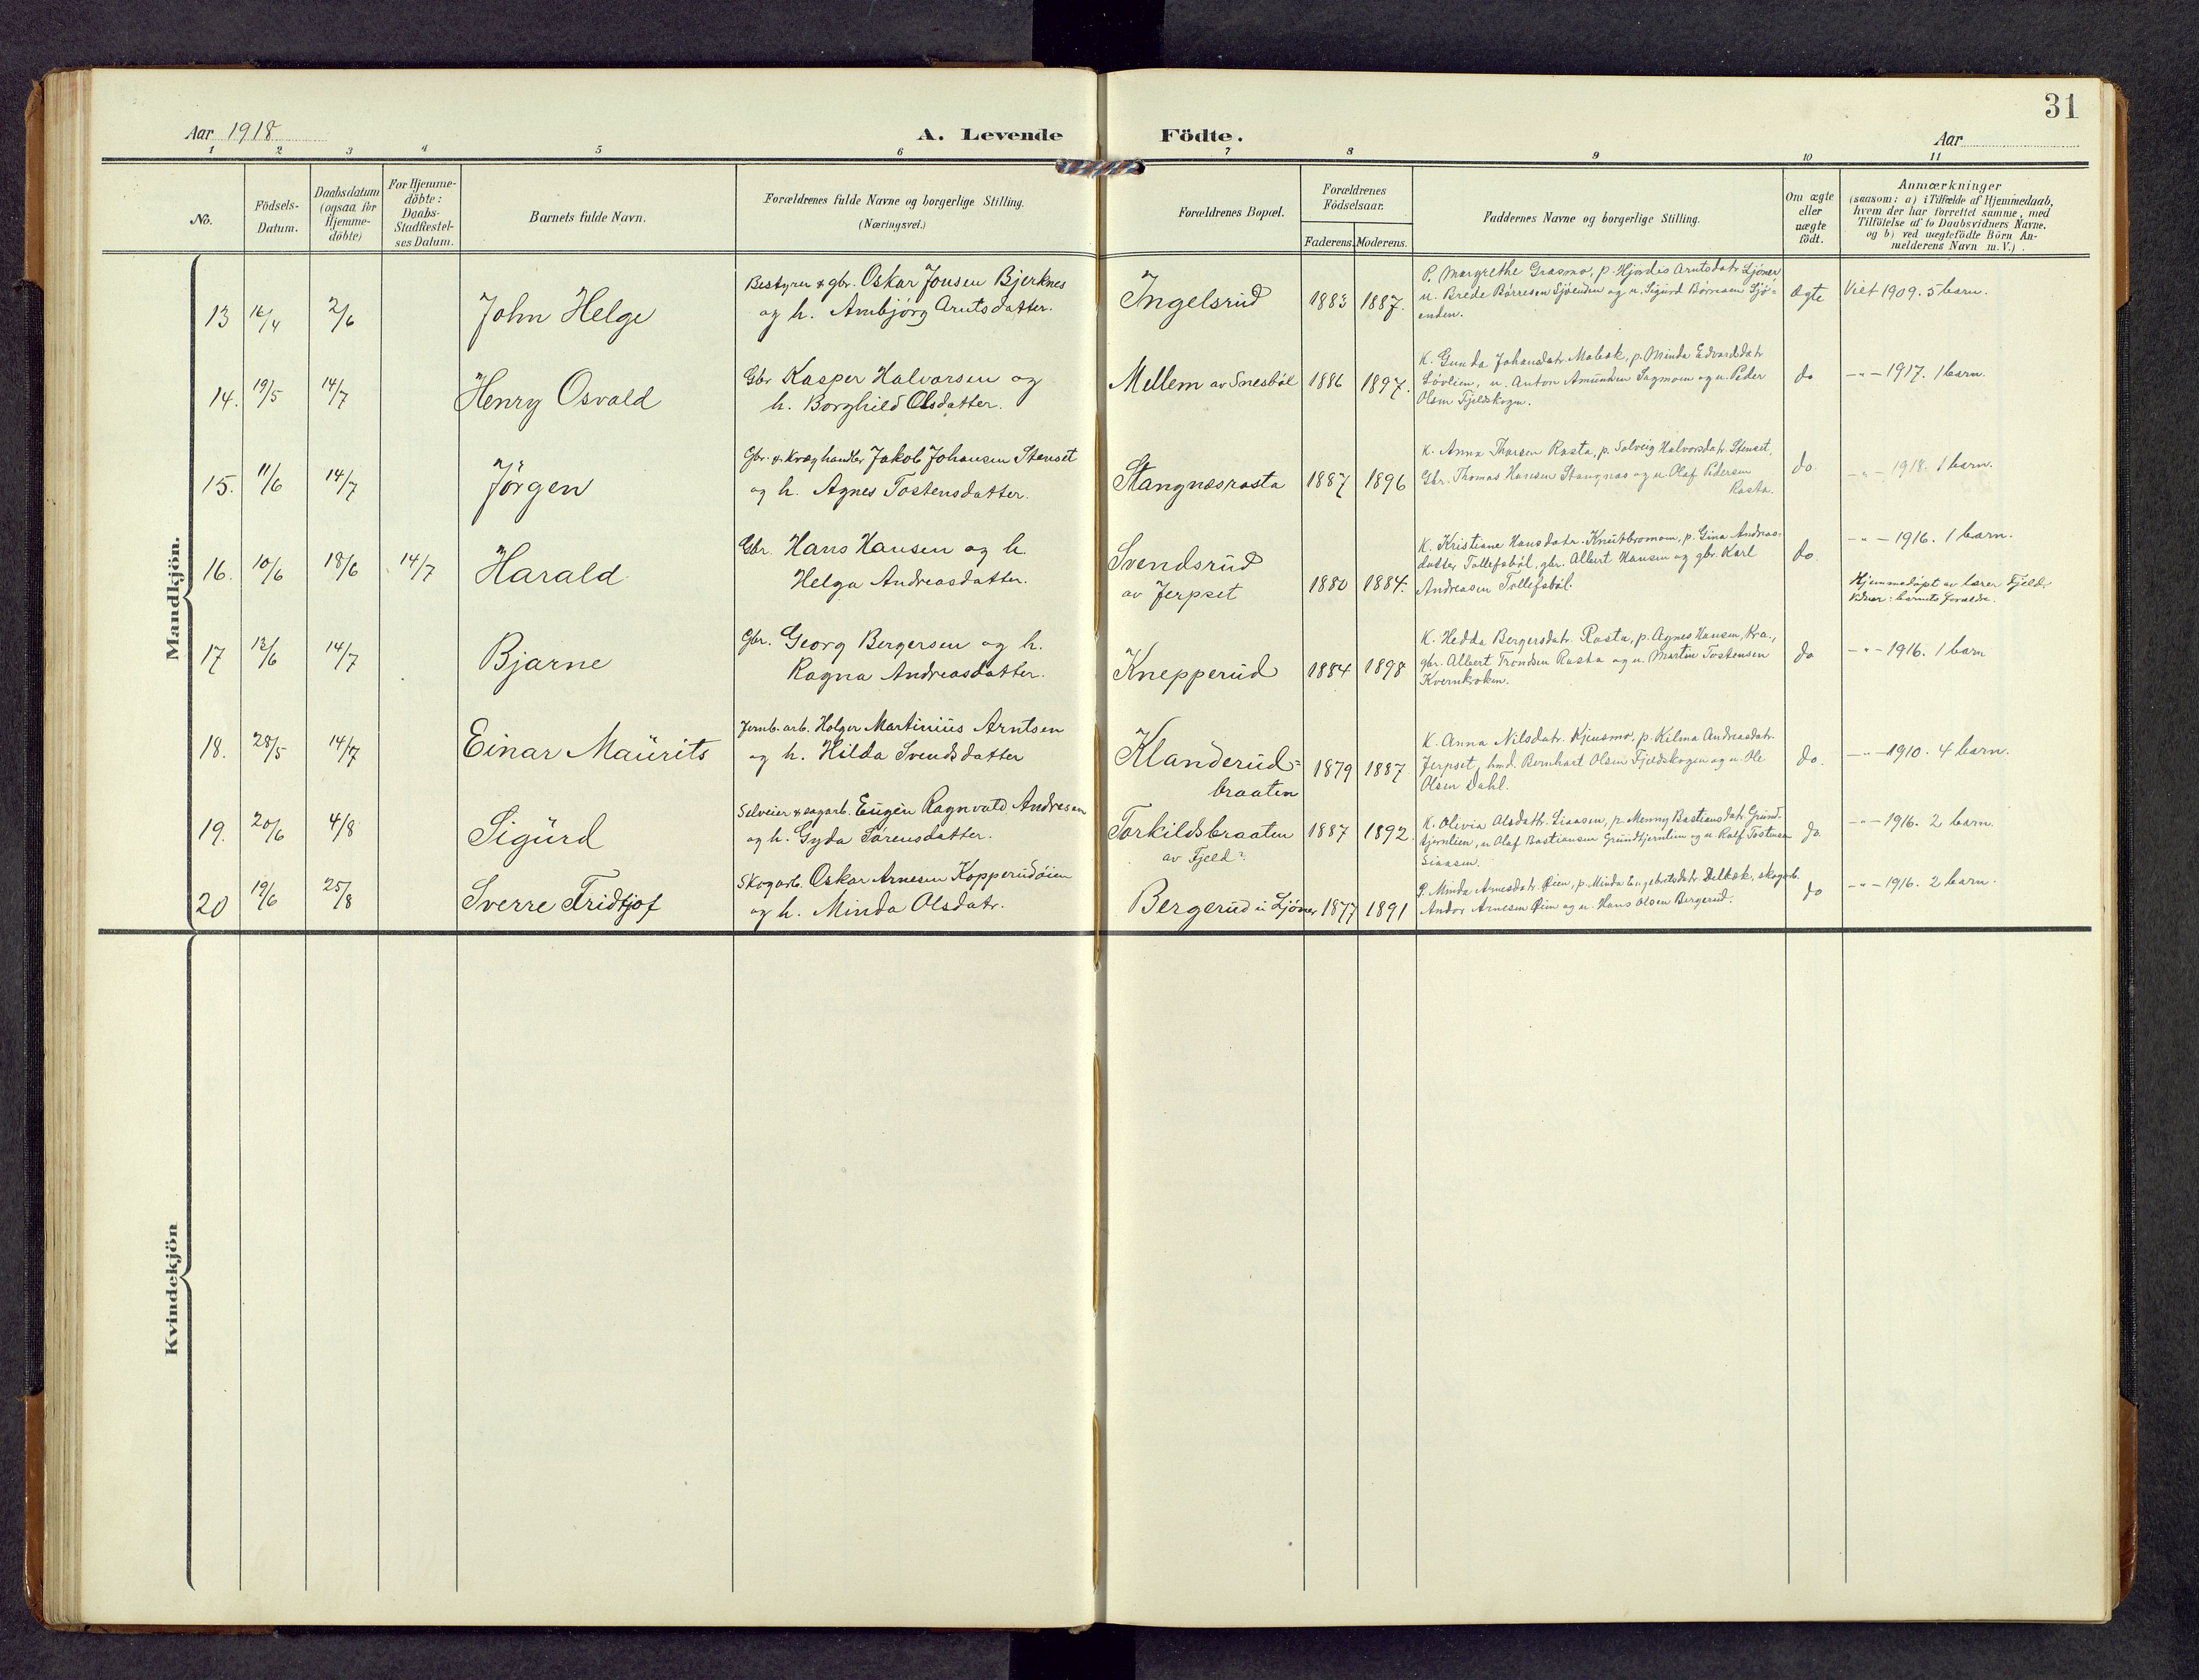 31
Aar 1918 A. Levende Födte. Aar
1 2 3 4 5 6 7 8 9 10 11
No.
Födsels-
Datum.
Daabsdatum
(ogsaa for
Hjemme-
döbte)
For Hjemme-
döbte:
Daabs-
Stadfæstel-
ses Datum.
Barnets fulde Navn.
Forældrenes fulde Navne og borgerlige Stilling.
(Næringsvei.)
Forældrenes Bopæl.
Forældrenes
Födselsaar.
Faderens. Moderens.
Faddernes Navne og borgerlige Stilling.
Om ægte
eller
uægte
födt.
Anmærkninger
(saasom: a) i Tilfælde af Hjemmedaab,
hvem der har forrettet samme, med
Tilföielse af to Daabsvidners Navne.
og b) ved uægtefödte Börn An-
melderens Navn m.V.)
Mandkjön.
13 16/4 2/6 John Helge
Bestyrer & gbr. Oskar Jonsen Bjerknes
og h. Ambjörg Arntsdatter.
Ingelsrud 1883 1887.
P. Margrethe Grasmo, p. Hjördis Arntsdatr Ljöner
u. Brede Börresen Sjöenden og u. Sigurd Börresen Sjö-
enden.
Ægte Viet 1909. 5 barn.
14. 19/5 14/7 Henry Osvald
Gbr Kasper Halvorsen og
h. Borghild Olsdatter.
Mellem av Snesböl 1886 1897.
K. Gunda Johansdatr. Mabak, p. Minda Edvardsdatr
Lövlien, u. Anton Amundsen Sagmoen og u. Peder
Olsen Fjeldskogen.
do -"- 1917. 1 barn.
15. 11/6 14/7 Jörgen
Gbr. & Kræghandler Jakob Johansen Stenset
og h. Agnes Tostensdatter.
Stangnæsrasta 1887 1896
K. Anna Thorsen Rasta, p. Solveig Halvorsdatr. Stenset,
Gbr. Thomas Hansen Stangnæs og u. Olaf Pedersen
Rasta.
do. -"- 1918. 1 barn.
16. 10/6 18/6 14/7 Harald
Gbr. Hans Hansen og h.
Helga Andreasdatter.
Svendsrud
av Jerpset 1880 1884.
K. Kristiane Hansdatr. Knutbromoen, p. Gina Andreas-
datter Tollefsböl, gbr. Albert Hansen og gbr. Karl
Andreasen Tollefsböl.
do. -"- 1916. 1 barn.
Hjemmedöpt av lærer Fjeld.
Vidner: barnets forældre.
17 12/6 14/7 Bjarne
Gbr. Georg Bergersen og h.
Ragna Andreasdatter.
Knepperud 1884 1898
K. Hedda Bergersdatr. Rasta, p. Agnes Hansen, Kra.,
gbr. Albert Trondsen Rasta og u. Martin Tostensen
Kvernkroken.
do -"- 1916. 1 barn
18. 28/5 14/7 Einar Maurits
Jernb.arb. Holger Martinius Arntsen
og h. Hilda Svendsdatter
Klanderud=
braaten 1879 1887
K. Anna Nilsdatr. Kjensmo, p. Kilma Andreasdatr.
Jerpset, hmd. Bernhart Olsen Fjeldskogen og u. Ole
Olsen Dahl.
do. -"- 1910. 4 barn.
19. 20/6 4/8 Sigurd
Selveier & sagarb. Eugèn Ragnvald Andresen
og h. Gyda Sörensdatter.
Torkildsbraaten
av Fjeld 1887 1892.
K. Olivia Olsdatr. Liaasen, p. Menny Bastiansdatr. Grund-
tjernlien, u Olaf Bastiansen Grundtjernlien og u. Rolf Tostensen
Liaasen.
do. -"- 1916. 2 barn.
20 19/6 25/8 Sverre Fridtjof
Skogarb. Oskar Arnesen Kopperudöien
og h. Minda Olsdatr.
Bergerud u Ljöner 1877 1891
G. Minda Arnesdatr. Öien, p. Minda Engebretsdatr. Delbæk, skogarb.
Andor Arnesen Öien og u. Hans Olsen Bergerud.
do -"- 1916. 2 barn.
Kvindekjön